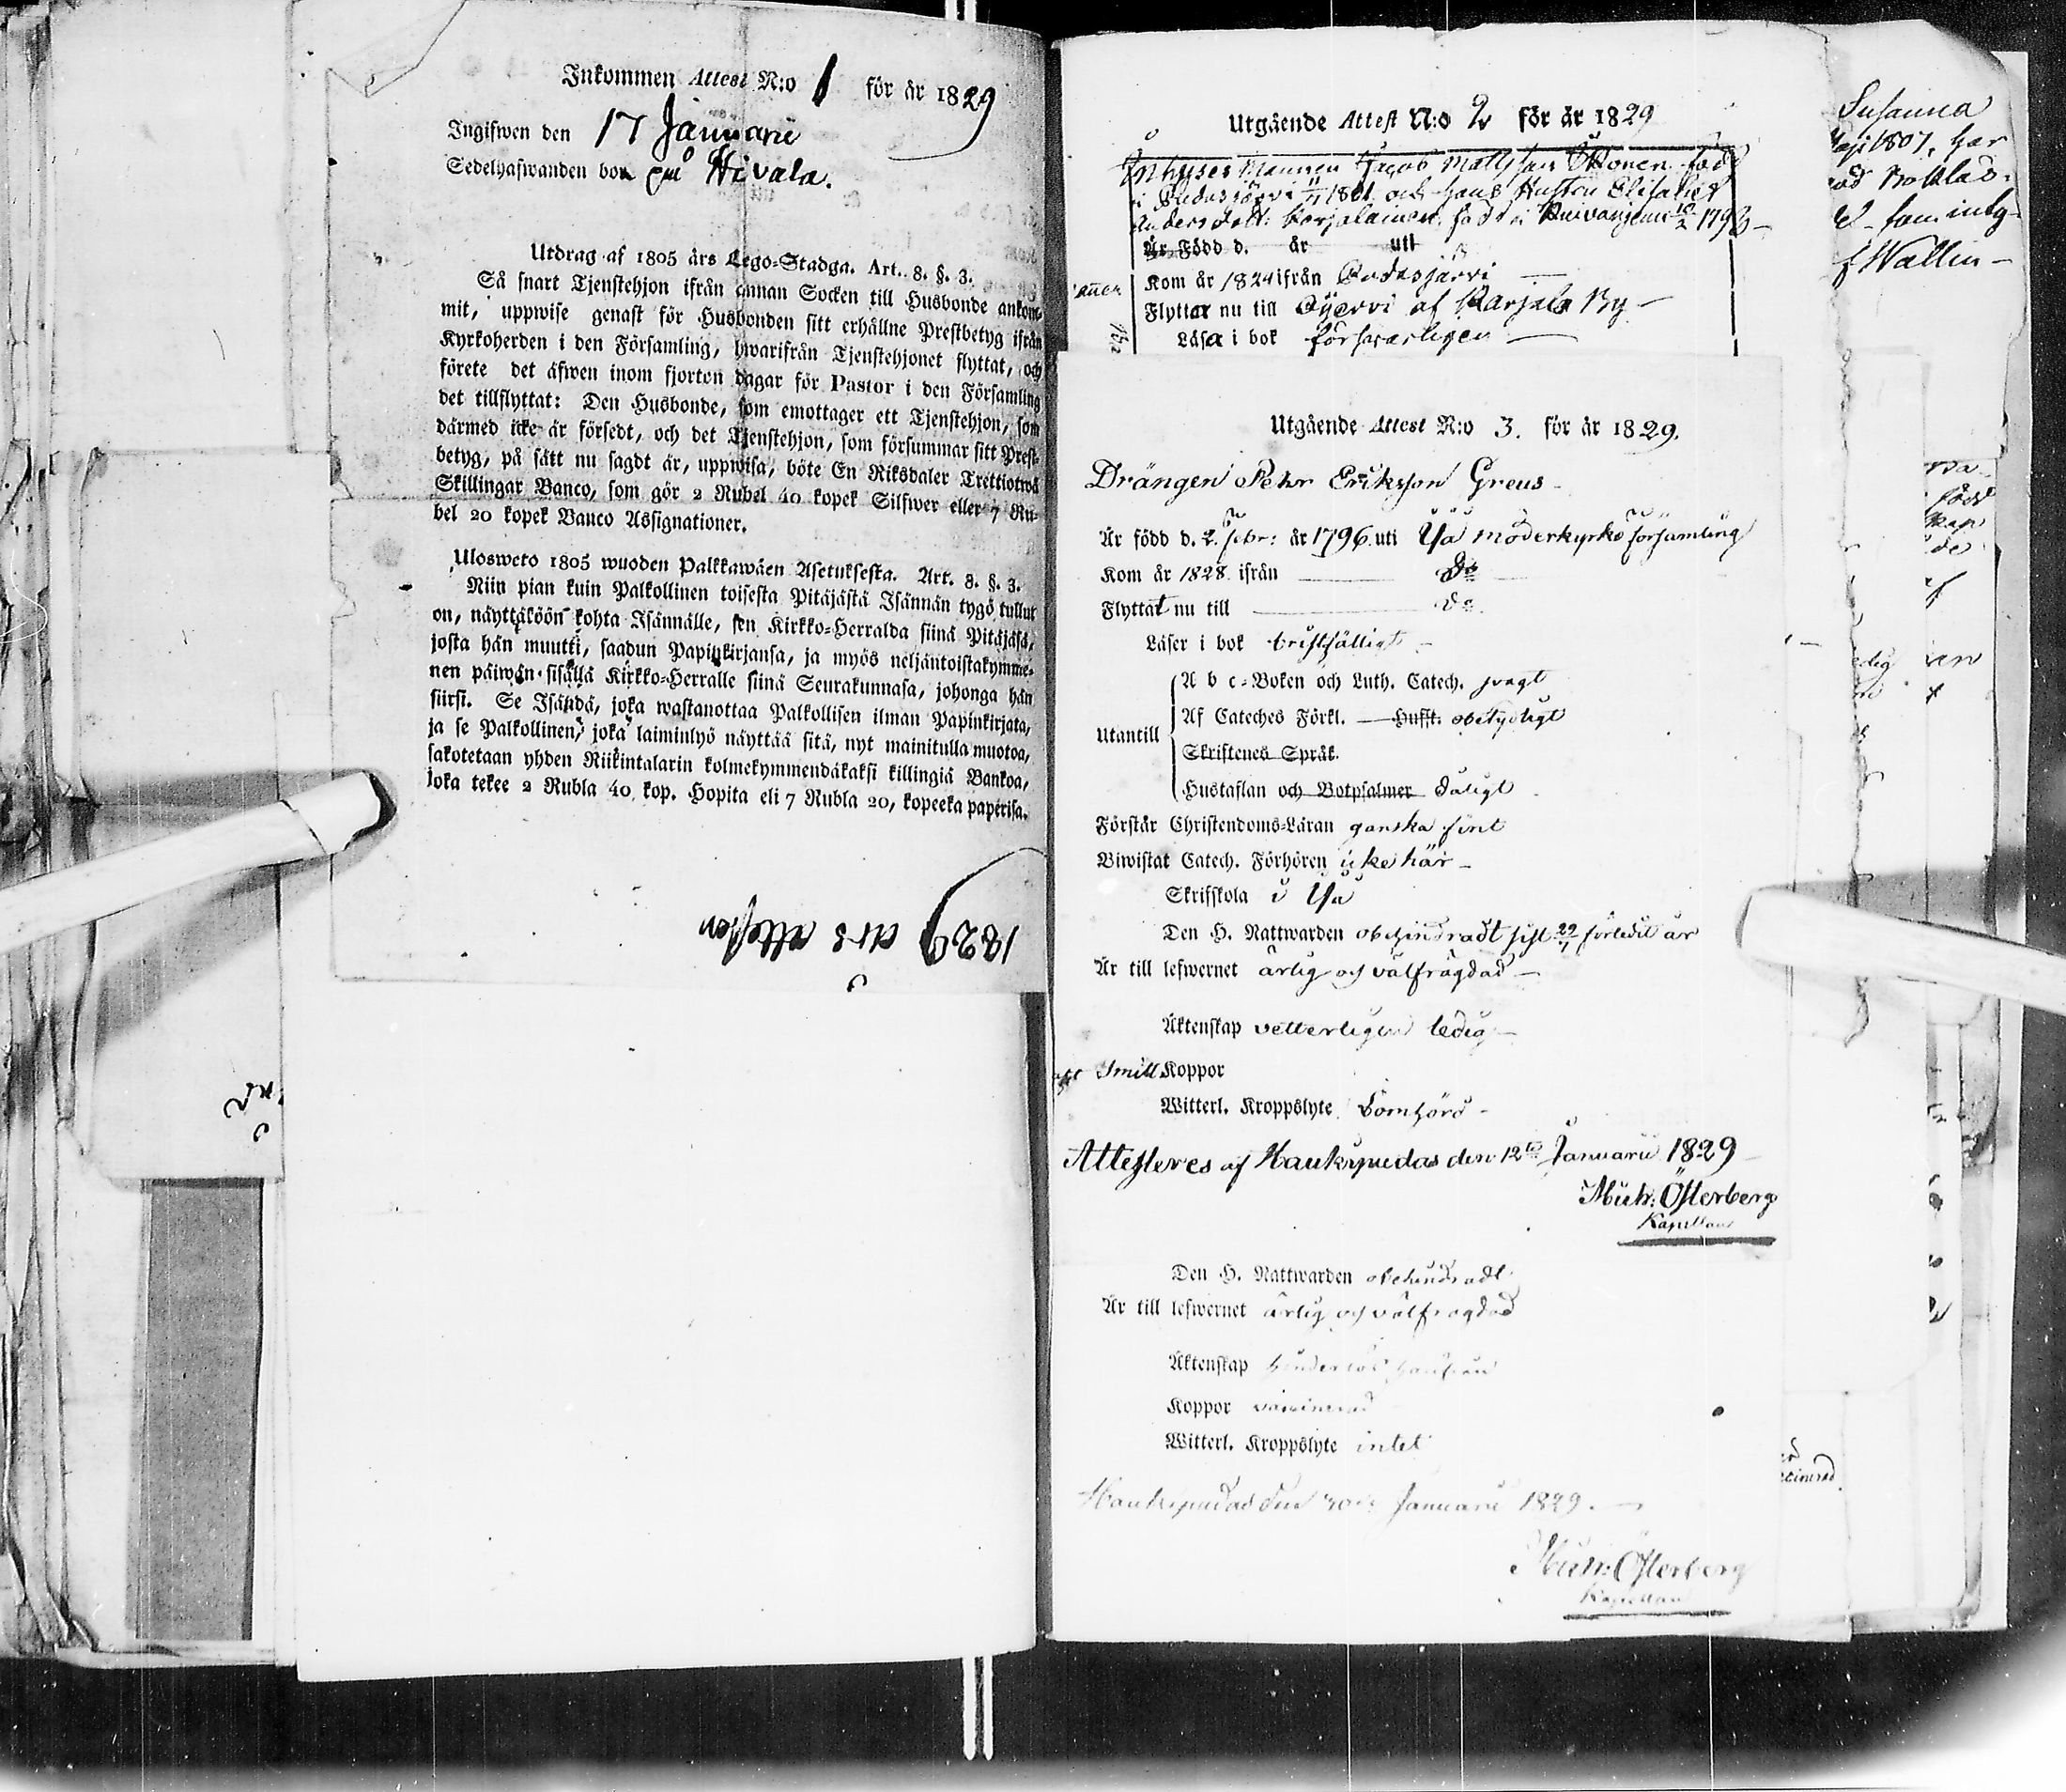 Inkommen Attest N:o 1 för år 1829
Ingifwen den 17 Januarii
Sedelhafwanden bor på Hivala.
Utdrag af 1805 års Lego-Stadga. Art. 8. §. 3.
Så snart Tjenstehjon ifrån annan Socken till Husbonde ankom-
mit, uppwise genast för Husbonden sitt erhållne Prestbetyg ifrån
Kyrkoherden i den Församling, hwarifrån Tjenstehjonet flyttat, och
förete det äfwen inom fjorton dagar för Pastor i den Församling
det tillflyttat: Den Husbonde, som emottager ett Tjenstehjon, som
därmed icke är försedt, och det Tjenstehjon, som försummar sitt Prest-
betyg, på sätt nu sagdt är, uppwisa, böte En Riksdaler Trettiotwå
Skillingar Banco, som gör 2 Rubel 40 kopek Silfwer eller 7 Ru-
bel 20 kopek Banco Assignationer.
Ulosweto 1805 wuoden Palkkawäen Asetuksesta. Art. 8. §. 3.
Niin pian kuin Palkollinen toisesta Pitäjästä Isännän tygö tullut
on, näyttäköön kohta Isännälle, sen Kirkko-Herralda siinä Pitäjäsä,
josta hän muutti, saadun Papinkirjansa, ja myös neljäntoistakymme-
nen päiwän sisällä Kirkko-Herralle siinä Seurakunnasa, johonga hän
siirsi. Se Isändä, joka wastanottaa Palkollisen ilman Papinkirjata,
ja se Palkollinen, joka laiminlyö näyttää sitä, nyt mainitulla muotoa,
sakotetaan yhden Riikintalarin kolmekymmendäkaksi killingiä Bankoa,
joka tekee 2 Rubla 40 kop. Hopita eli 7 Rubla 20, kopeeka paperisa.
1829 års attester
Utgående Attest N:o 2 för år 1829
Inhyses Mannen Jacob Matts son född
i Pudasjärvi 1801 och hans Hustru Elisabet
Anders dott: Karjalainen född i 1793
Är Född d. år uti
Kom år 1824 ifrån Pudasjärvi
Flyttar nu till af Karjala By
Läsa i bok försvarligen
Utgående Attest N:o 3. för år 1829.
Drängen Pehr Eriksson Greus
Är född d. 2. Febr: år 1796 uti Ijå moderkyrko församling
Kom år 1828 ifrån do
Flyttat nu till do
Läser i bok bristfälligt
Utantill
A b c-Boken och Luth. Catech. svagt
Af Cateches Förkl. Hufft. obetydligt
Skriftenes Språk.
Hustaflan och Botpsalmer dåligt
Förstår Christendoms-Läran ganska fint
Biwistat Catech. Förhören icke här
Skriftskola i Ijå
Den H. Nattwarden obehindradt sist förledit år
Är till lefwernet ärlig och välfrägdad
Äktenskap vetterligen ledig
Koppor
Witterl. Kroppslyte Lomhörd
Attesteres af Haukipudas den 12te Januarii 1829
Österberg
Kapellan
Den H. Nattwarden obehindradt
Är till lefwernet ärlig och välfrägdad
Äktenskap
Koppor vaccinerad
Witterl. Kroppslyte intet
Haukipudas den Januarii 1829.
Österberg
Kapellan
Susanna
1807, har
Wallin